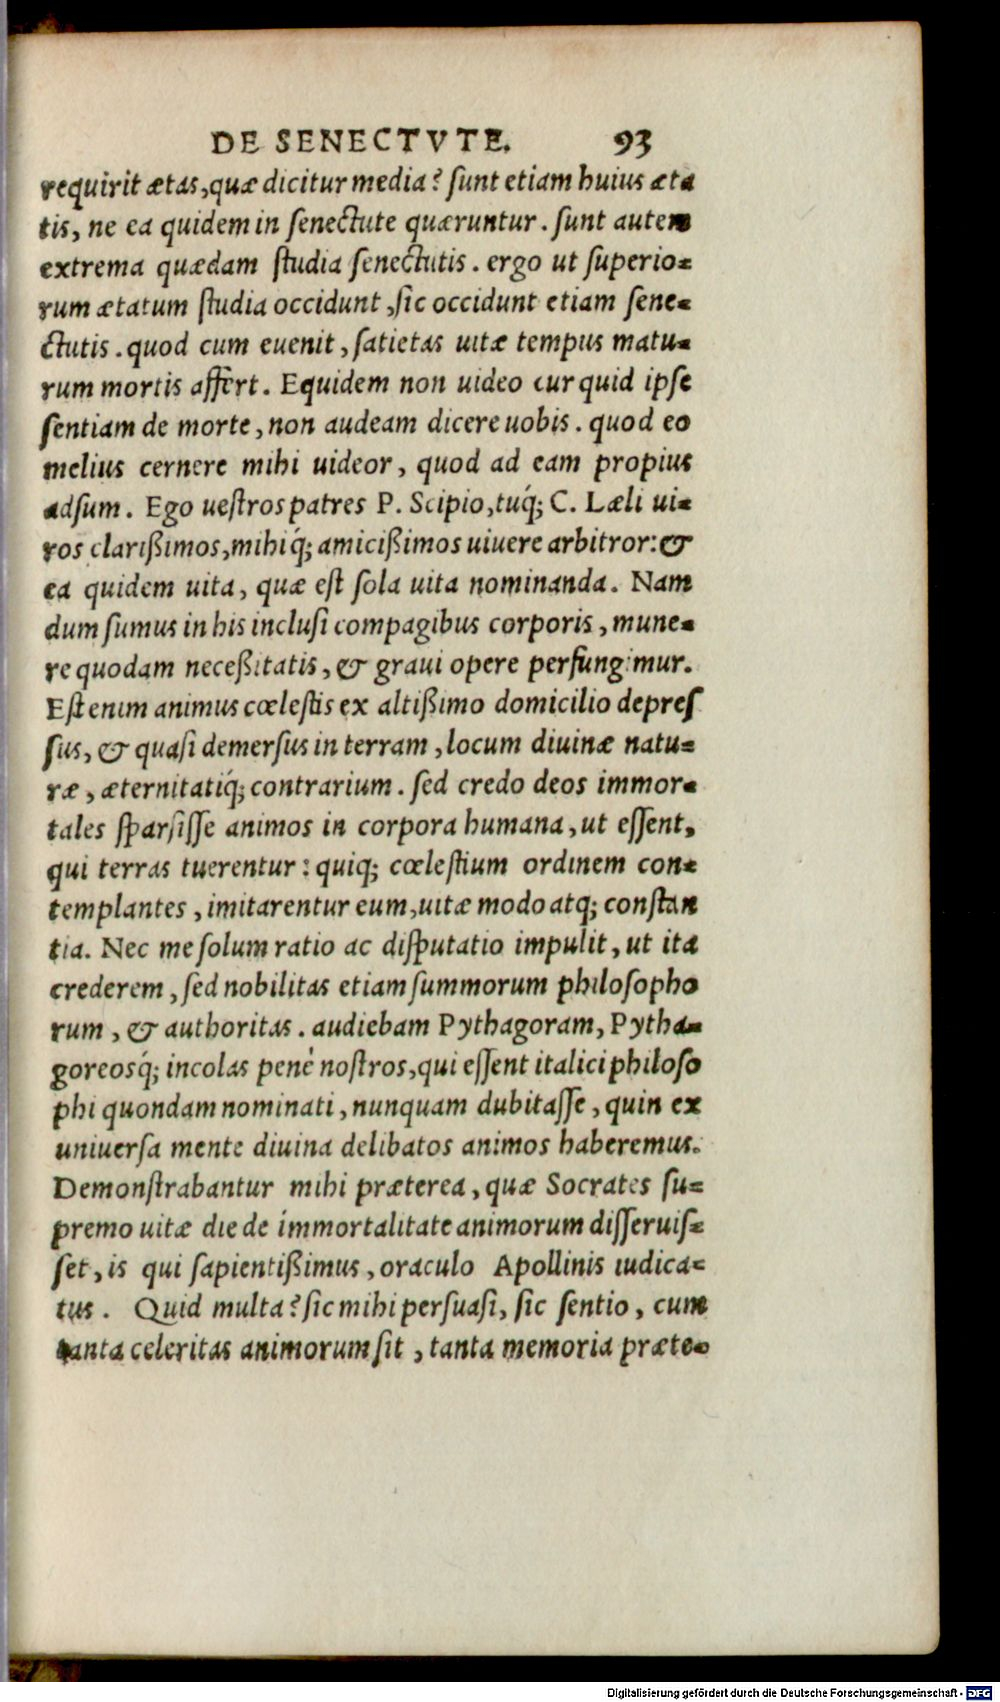 DE SENECTVTE. 93
requirit ætas, quæ dicitur media? ſunt etiam huius æta
tis, ne ea quidem in ſenectute quæruntur. ſunt autem
extrema quædam ſtudia ſenectutis. ergo ut ſuperio-
rum ætatum ſtudia occidunt, ſic occidunt etiam ſene-
ctutis. quod cum euenit, ſatietas uitæ tempus matu-
rum mortis affert. Equidem non uideo cur quid ipſe
ſentiam de morte, non audeam dicere uobis. quod eo
melius cernere mihi uideor, quod ad eam propius
adſum. Ego ueſtros patres P. Scipio, tuq́; C. Læli ui-
ros clarißimos, mihiq́; amicißimos uiuere arbitror: &
ea quidem uita, quæ eſt ſola uita nominanda. Nam
dum ſumus in his incluſi compagibus corporis, mune-
re quodam neceßitatis, & graui opere perfungimur.
Eſt enim animus cœleſtis ex altißimo domicilio depreſ
ſus, & quaſi demerſus in terram, locum diuinæ natu-
ræ, æternitatiq́; contrarium. ſed credo deos immor-
tales ſparſiſſe animos in corpora humana, ut eſſent,
qui terras tuerentur: quiq; cœleſtium ordinem con-
templantes, imitarentur eum, uitæ modo atq; conſtan
tia. Nec me ſolum ratio ac diſputatio impulit, ut ita
crederem, ſed nobilitas etiam ſummorum philoſopho
rum, & authoritas. audiebam Pythagoram, Pytha-
goreosq́; incolas penè noſtros, qui eſſent italici philoſo
phi quondam nominati, nunquam dubitaſſe, quin ex
uniuerſa mente diuina delibatos animos haberemus.
Demonſtrabantur mihi præterea, quæ Socrates ſu-
premo uitæ die de immortalitate animorum diſſeruiſ-
ſet, is qui ſapientißimus, oraculo Apollinis iudica-
tus. Quid multa? ſic mihi perſuaſi, ſic ſentio, cum
tanta celeritas animorum ſit, tanta memoria præte-
Digitalisierung gefördert durch die Deutsche Forschungsgemeinschaft - DFG